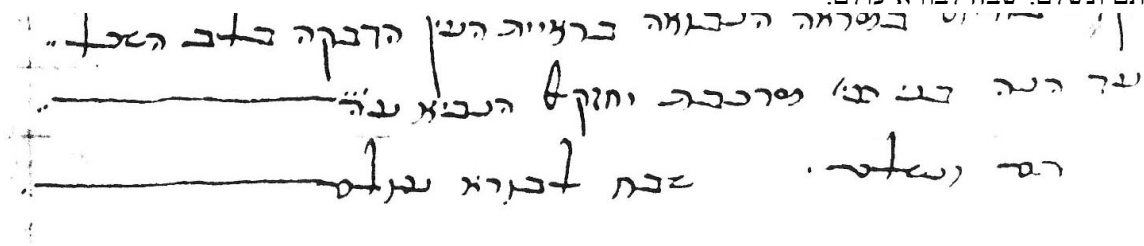 תם ונשלם. שבח לבורא עולם.
במראה הנבואה בראיית העין הדבקה בלב השכל..
עד הנה דברי רבי' מרכבת יחזקאל הנביא ע"ה
תם ונשלם. שבח לבורא עולם